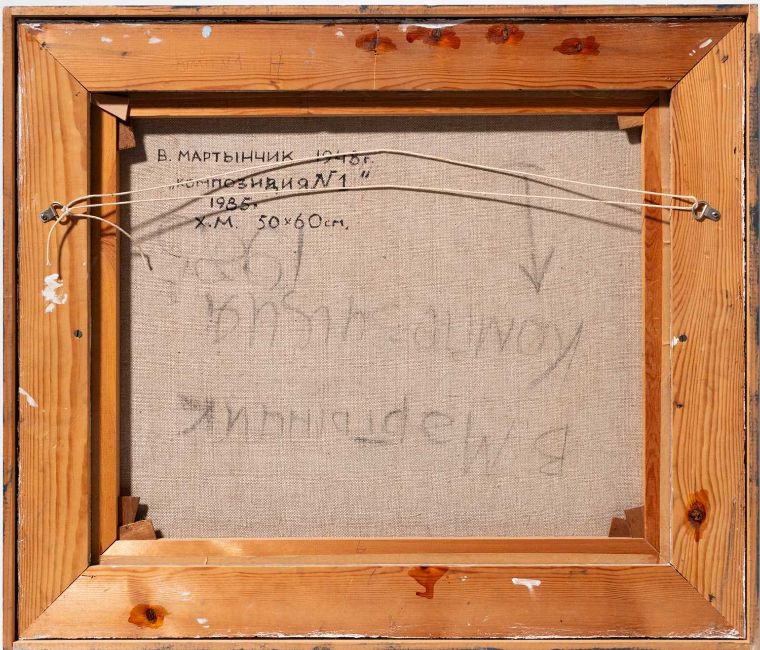 В. МАРТЫНЧИК 1948г.
„КОМПОЗИЦИЯ N1"
1985г.
Х.М. 50×60см.
В Мартынчик
Композиция